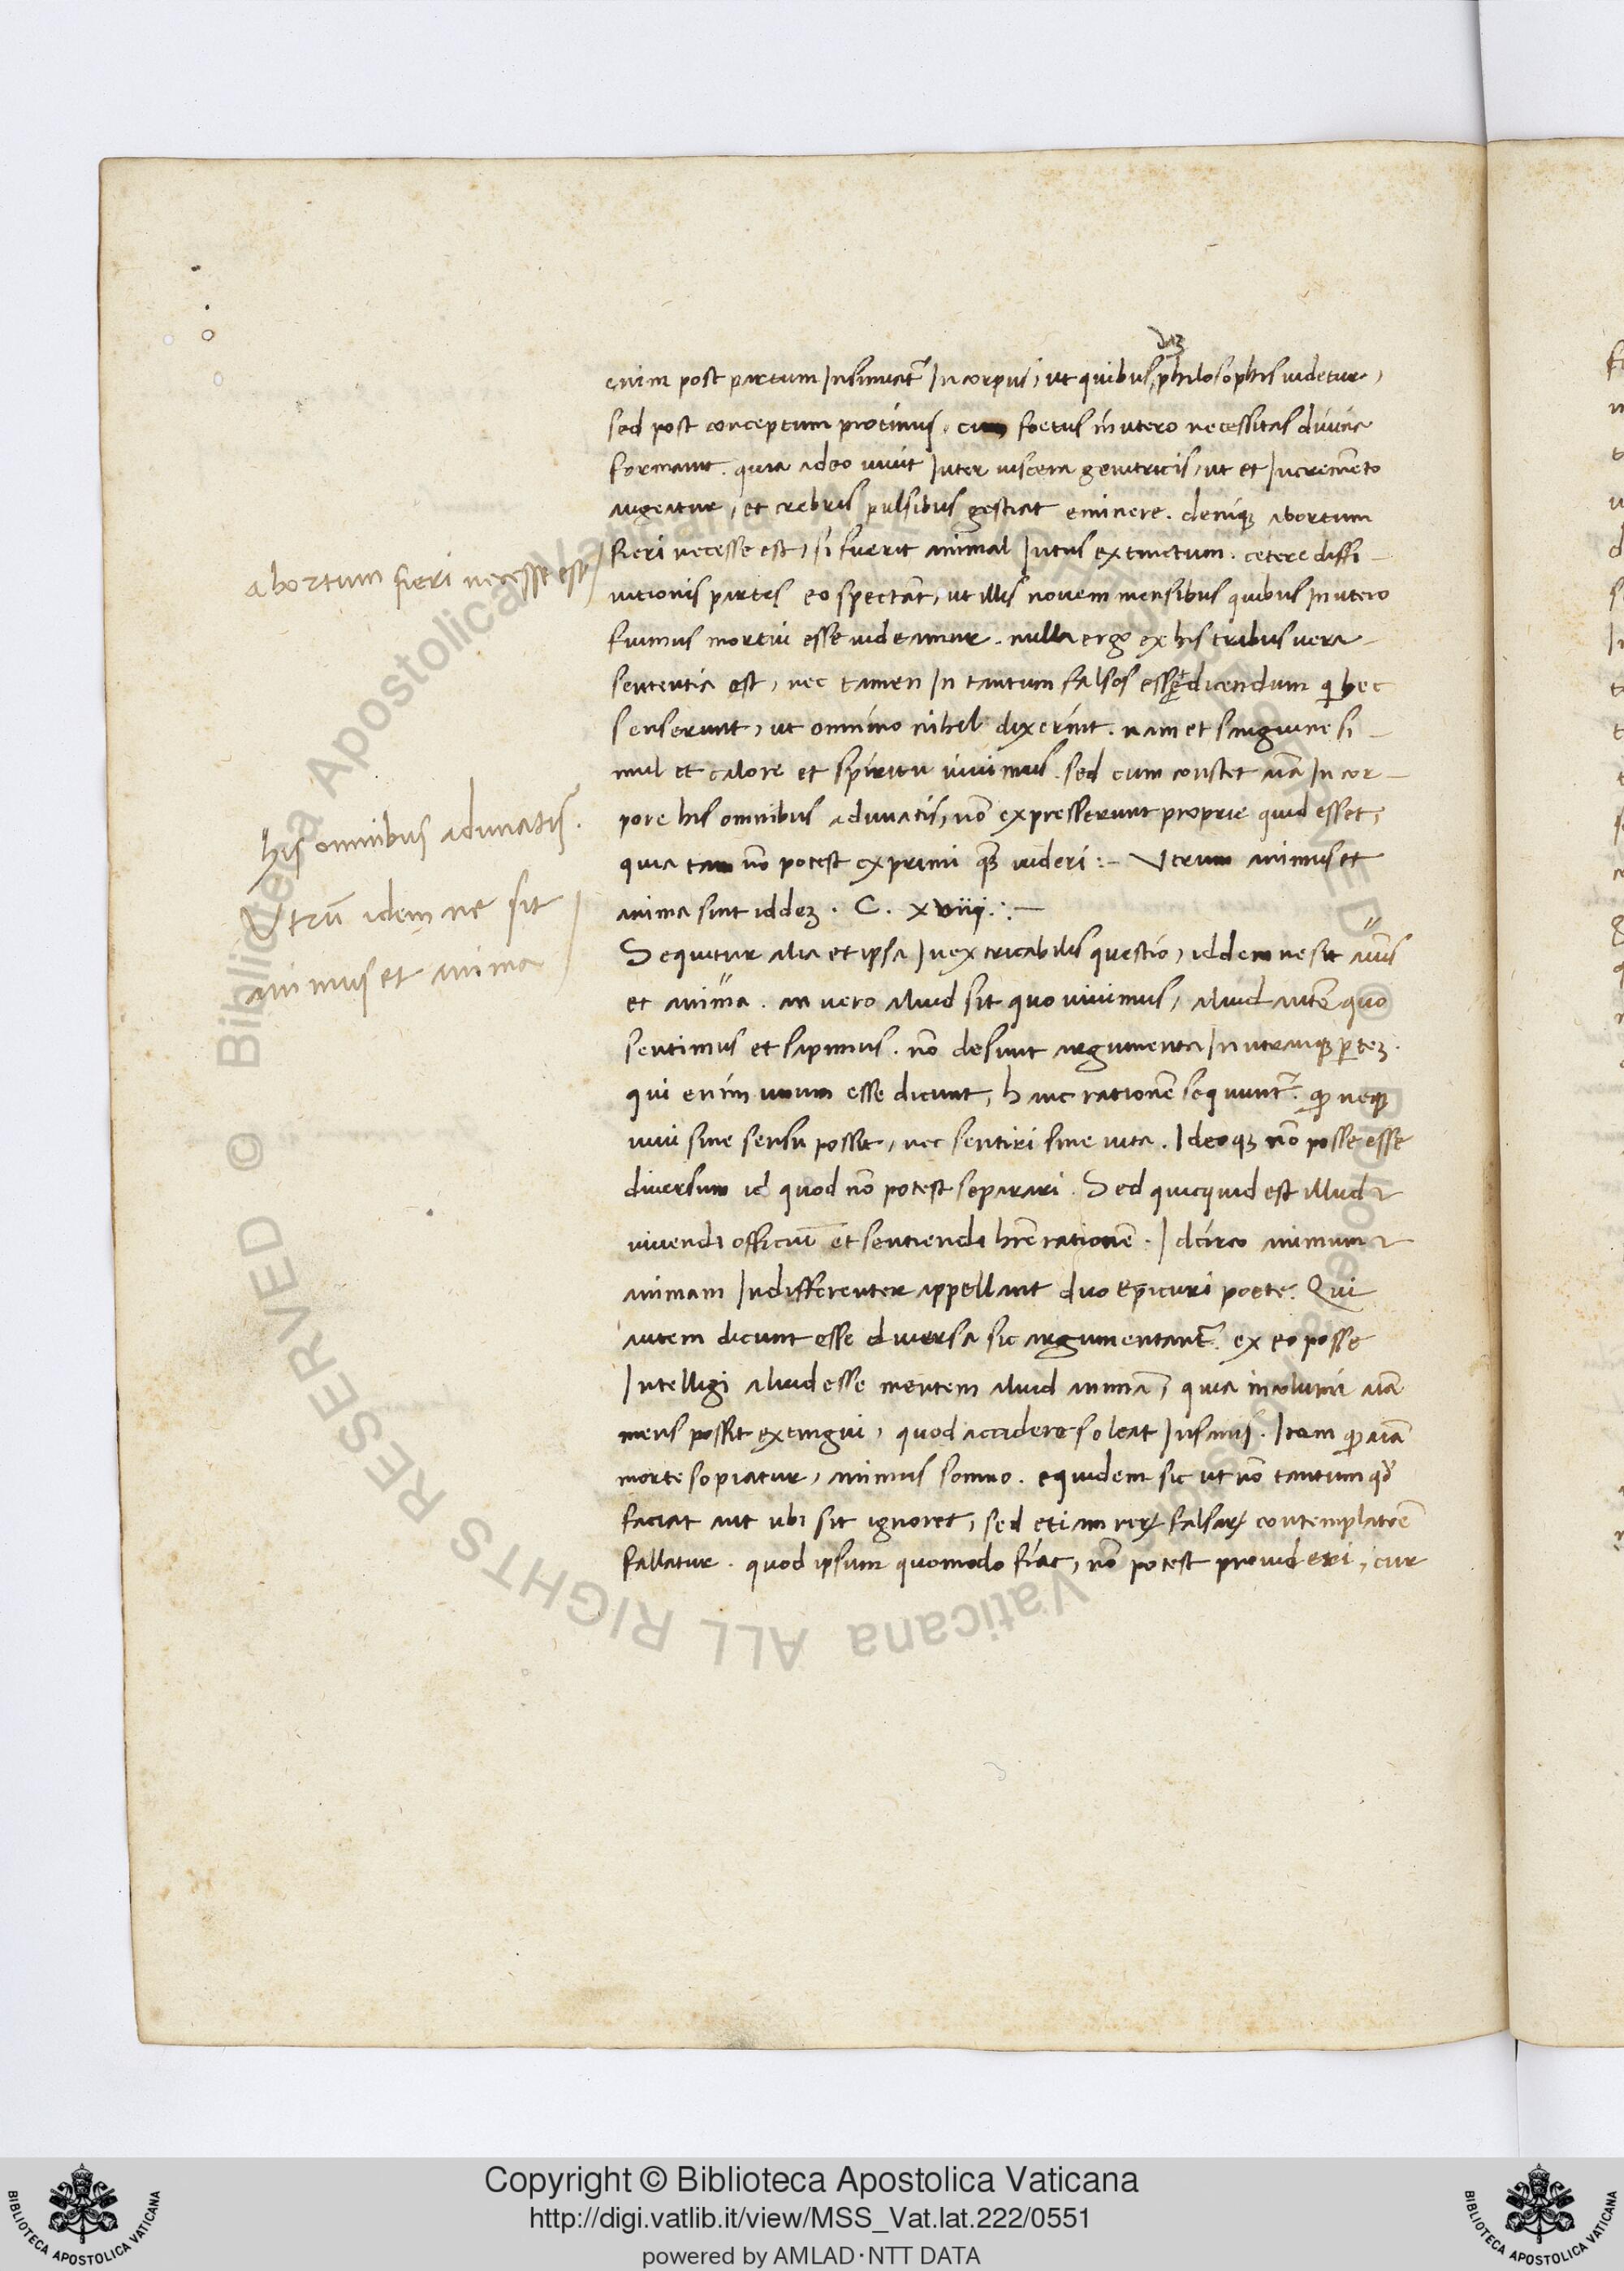 dã
enim post partum Insinuat᷑ In corpus, ut quibus philosophis uidetur,
sed post conceptum protinus. cum foetus in utero necessitas diuina
formauit. quia adeo uiuit Inter uiscera genitricis, ut et Incremẽto
augeatur, et crebris pulsibus gestiat eminere. deniq; abortum
abortum fieri necesse est
fieri necesse est, si fuerit animal Intus extinctum. cetere diffi-
nitionis partes eo spectãt, ut illis nouem mensibus quibus In utero
fuimus mortui esse uideamur. nulla ergo ex his tribus uera-
sententia est, nec tamen In tantum falsos esse dicendum qui hec
senserunt, ut omnino nihil dixerint. nam et sanguine si-
mul et calore et spiritu uiuimus. sed cum constet aĩa In cor-
his omnibus adunatis.
pore his omnibus adunatis, nõ expresserunt proprie quid esset,
quia tam nõ potest exprimi quã uideri:- Utrum animus et
Vtrũ idem ne sit
animus et anima
anima sint iddez. C. xviij.:-
Sequitur alia et ipsa Inextricabilis questio, iddem ne sit aĩus
et anima. an uero aliud sit quo uiuimus, aliud autẽ quo
sentimus et sapimus. nõ desunt argumenta In utranq; ꝑtez.
qui enim unum esse dicunt, hanc rationẽ sequunt᷑. ꝙ neq;
uiui sine sensu possit, nec sentiri sine uita. Ideoq; nõ posse esse
diuersum id quod nõ potest separari. Sed quicquid est illud &
uiuendi officiũ et sentiendi hr̃e rationẽ. Idcirco animum &
animam Indifferenter appellant duo Epicuri poete. Qui
autem dicunt esse diuersa sic argumentant᷑. ex eo posse
Intelligi aliud esse mentem aliud animã, quia incolumi aĩa
mens possit extingui, quod accidere soleat Insanis. Item ꝙ aĩa
morte sopiatur, animus somno. equidem sic ut nõ tantum qd̃
faciat aut ubi sit ignoret, sed etiam reꝝ falsaꝝ contemplatõe
fallatur. quod ipsum quomodo fiat, nõ potest prouideri, cur
Copyright © Biblioteca Apostolica Vaticana
http://digi.vatlib.it/view/MSS_Vat.lat.222/0551
powered by AMLAD·NTT DATA
BIBLIOTECA APOSTOLICA VATICANA
BIBLIOTECA APOSTOLICA VATICANA